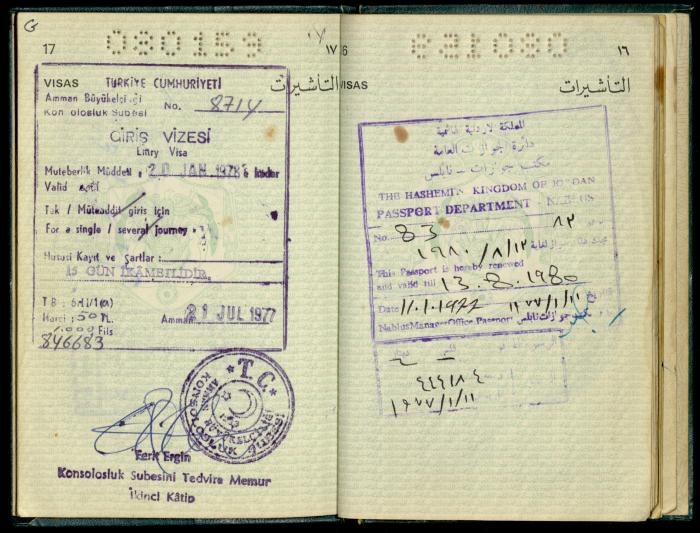 G
17
030153
١٧
VISAS
التأشيرات
TÜRKİYE CUMHURİYETİ
Amman Büyükelçiliği
Konsolosluk Subesi
No. 8714
GİRİŞ VİZESİ
Entry Visa
Muteberlik Müddeti : 20 JAN 1978 e kadar
Valid until
Tek / Müteaddit giris için
For a single / several journey
Hususi Kayıt ve Şartlar :
15 GÜN İKAMELİDİR
T B : 6-11/1(A)
Harci : 50 TL.
Fils
846683
Amman
21 JUL 1977
T.C.
AMMAN BÜYÜKELÇİLİĞİ
KONSOLOSLUK ŞUBESİ
Ferk Ergin
Konsolosluk Subesini Tedvire Memur
İkinci Kâtip
6
١٦
VISAS
التأشيرات
المملكة الاردنية الهاشمية
دائرة الجوازات العامة
مكتب جوازات - نابلس
THE HASHEMITE KINGDOM OF JORDAN
PASSPORT DEPARTMENT - NABLUS
No. 83
٨٣
١٩٨٠/٨/١٣
This Passport is hereby renewed
and valid till 13.8.1980
Date 11.1.1977
١٩٧٧/١/١١
Nablus Manager Office Passport